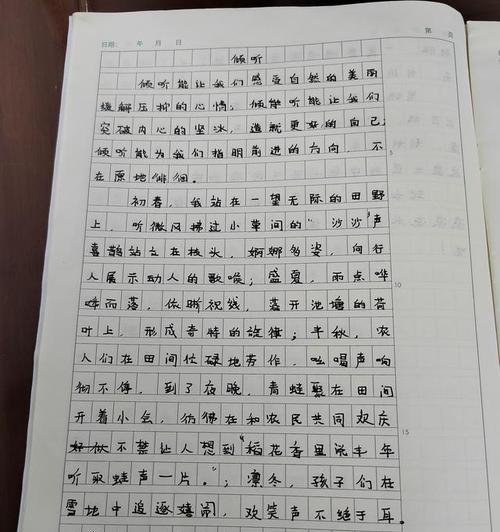 第 页
日期: 年 月 日
倾听
倾听能让我们感受自然的美丽
缓解压抑的心情；倾听能让我们
突破内心的坚冰，造就更好的自己；
倾听能为我们指明前进的方向，不
在原地徘徊。
初春，我站在一望无际的田野
上，听微风拂过小草间的“沙沙”声
喜鹊站立在枝头，婀娜多姿，向行
人展示动人的歌喉；盛夏，雨点哗
哗而落，依晰视线，落开池塘的荷
叶上，形成奇特的旋律；半秋，农
人们在田间忙碌地劳作，吆喝声响
彻不停，到了夜晚，青蛙聚在田间
开着小会，仿佛在和农民共同欢庆
不禁让人想到“稻花香里说丰年
听取蛙声一片。”；凛冬，孩子们在
雪地中追逐嬉闹，欢笑声不绝于耳。
5
10
15